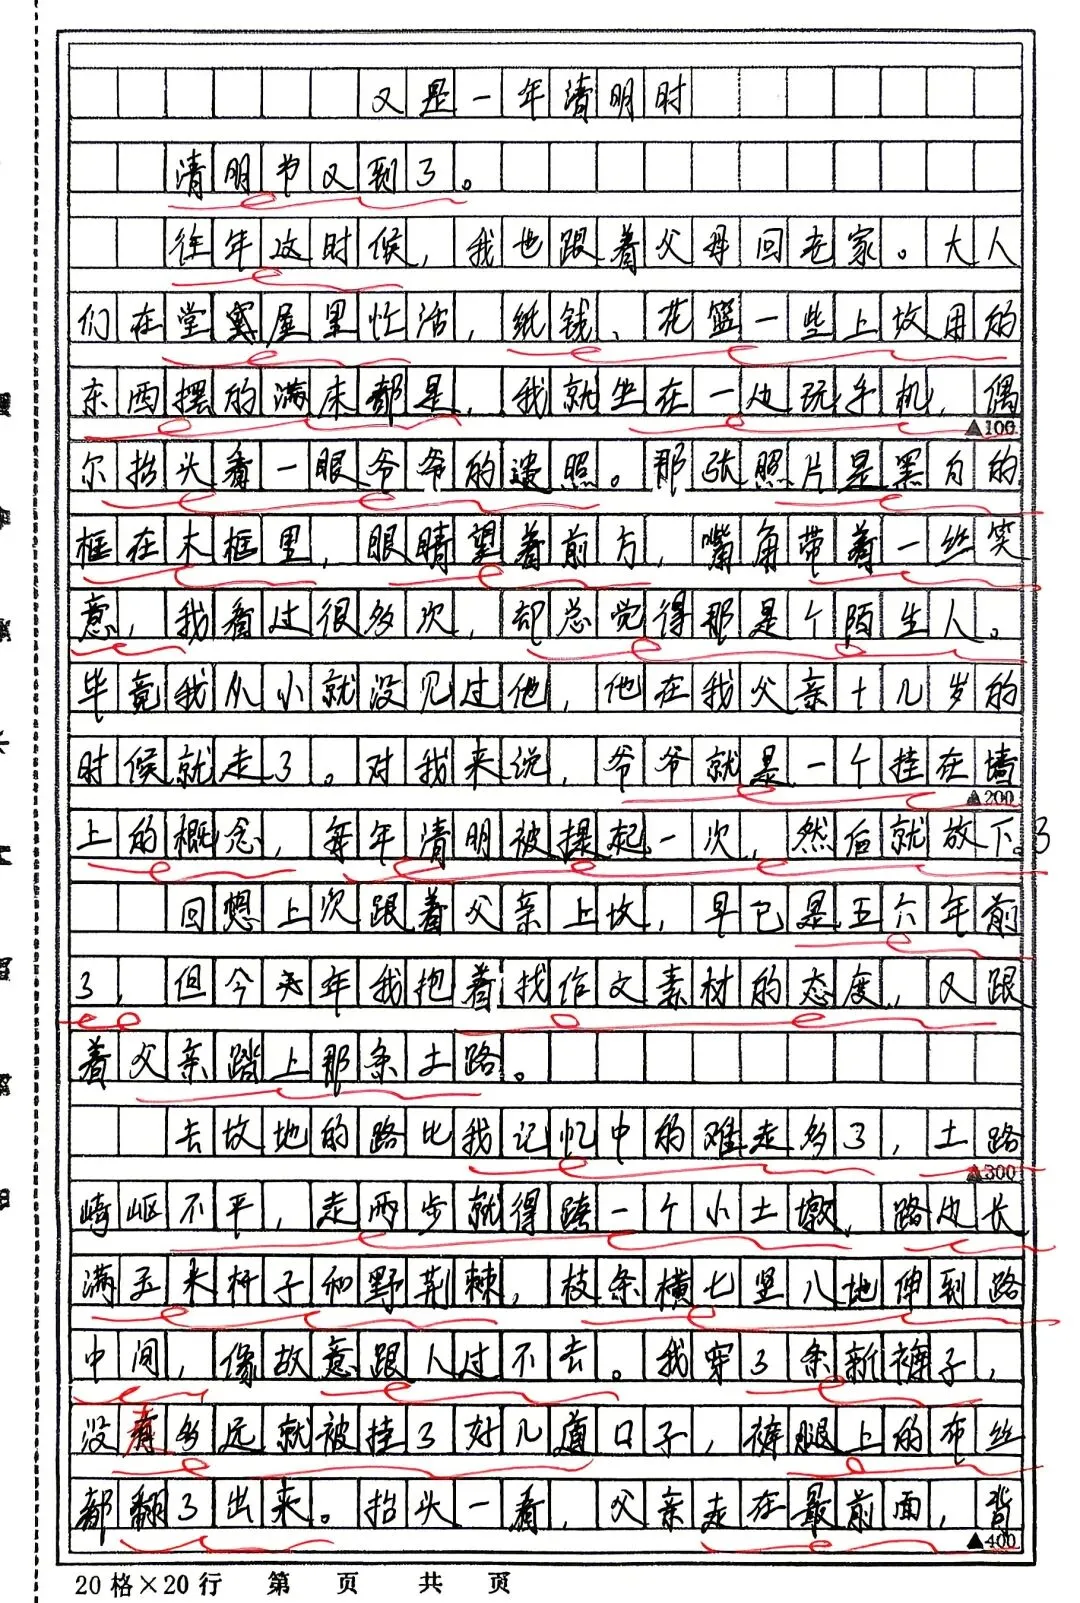 又是一年清明时
清明节又到了。
往年这时候，我也跟着父母回老家。大人
们在堂屋里忙活，纸钱、花篮一些上坟用的
东西摆的满床都是，我就坐在一边玩手机，偶
▲100
尔抬头看一眼爷爷的遗照。那张照片是黑白的
框在木框里，眼睛望着前方，嘴角带着一丝笑
意，我看过很多次，却总觉得那是个陌生人。
毕竟我从小就没见过他，他在我父亲十几岁的
时候就走了。对我来说，爷爷就是一个挂在墙
▲200
上的概念，每年清明被提起一次，然后就放下了。
回想上次跟着父亲上坟，早已是五六年前
了，但今年我抱着找作文素材的态度，又跟
着父亲踏上那条土路。
去坟地的路比我记忆中的难走多了，土路
▲300
崎岖不平，走两步就得跨一个小土墩，路边长
满玉米杆子和野荆棘，枝条横七竖八地伸到路
中间，像故意跟人过不去。我穿了条新裤子，
没走多远就被挂了好几道口子，裤腿上的布丝
都翻了出来。抬头一看，父亲走在最前面，背
▲400
20格×20行 第 页 共 页